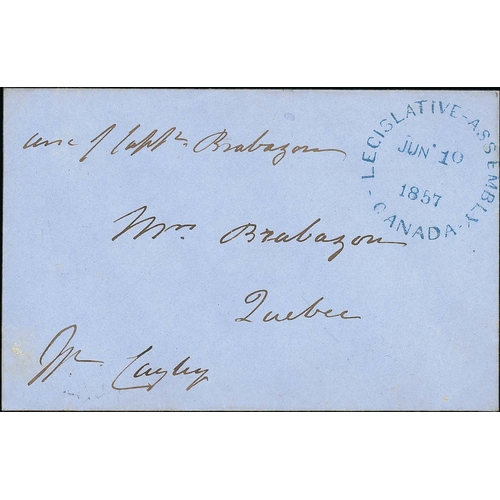 Capt. Brabazon
LEGISLATIVE-ASSEMBLY-
JUN 10
1857
CANADA-
Mrs Brabazon
Quebec
Cayley